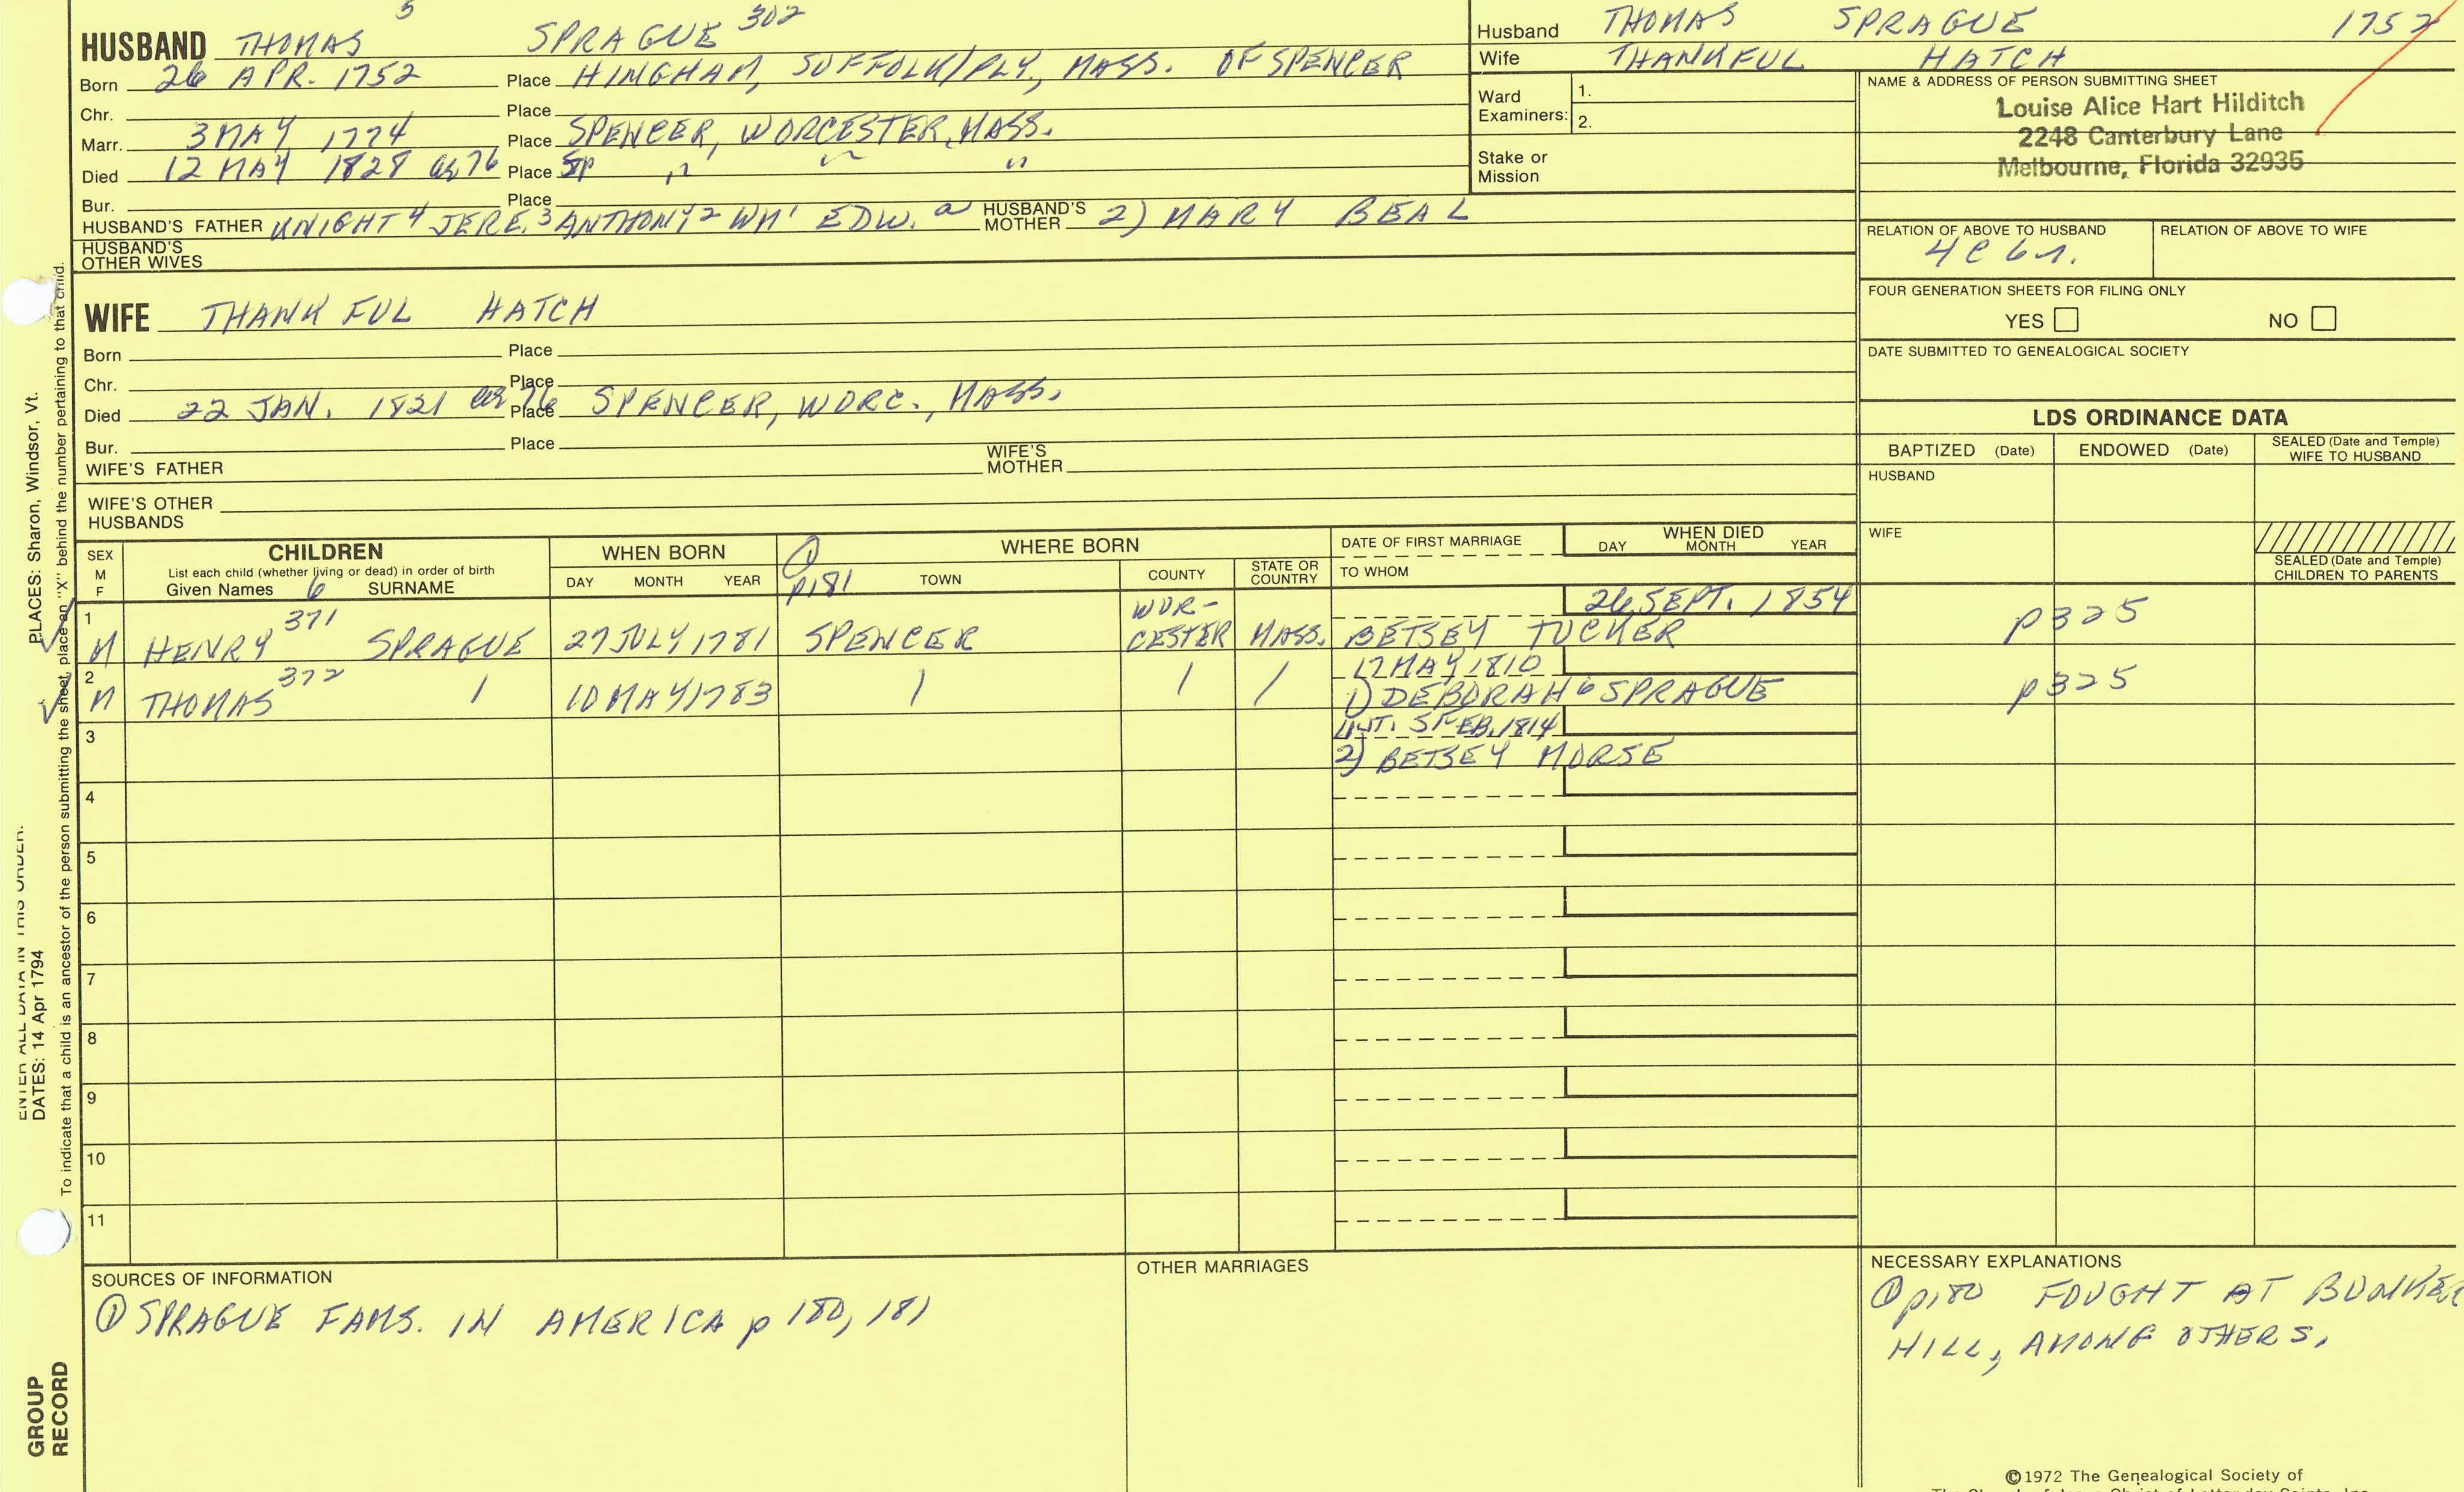 5
HUSBAND THOMAS SPRAGUE 302
Born 26 APR. 1752 Place HINGHAM, SUFFOLK/PLY., MASS. OF SPENCER
Chr. Place
Marr. 3 MAY 1774 Place SPENCER, WORCESTER, MASS.
Died 12 MAY 1828 ae 76 Place SP " " "
Bur. Place
HUSBAND'S FATHER KNIGHT 4 JERE. 3 ANTHONY 2 WM 1 EDW. a HUSBAND'S MOTHER 2) MARY BEAL
HUSBAND'S OTHER WIVES
Husband THOMAS SPRAGUE 1752
Wife THANKFUL HATCH
Ward Examiners: 1.
2.
Stake or Mission
NAME & ADDRESS OF PERSON SUBMITTING SHEET
Louise Alice Hart Hilditch
2248 Canterbury Lane
Melbourne, Florida 32935
RELATION OF ABOVE TO HUSBAND RELATION OF ABOVE TO WIFE
4C 6r.
FOUR GENERATION SHEETS FOR FILING ONLY
YES NO
DATE SUBMITTED TO GENEALOGICAL SOCIETY
WIFE THANKFUL HATCH
Born Place
Chr. Place
Died 22 JAN. 1821 ae 76 Place SPENCER, WORC., MASS.
Bur. Place
WIFE'S FATHER WIFE'S MOTHER
WIFE'S OTHER HUSBANDS
LDS ORDINANCE DATA
BAPTIZED (Date) ENDOWED (Date) SEALED (Date and Temple) WIFE TO HUSBAND
HUSBAND
WIFE
SEALED (Date and Temple) CHILDREN TO PARENTS
SEX M F CHILDREN WHEN BORN 1 WHERE BORN DATE OF FIRST MARRIAGE WHEN DIED
List each child (whether living or dead) in order of birth
Given Names 6 SURNAME DAY MONTH YEAR p181 TOWN COUNTY STATE OR COUNTRY TO WHOM DAY MONTH YEAR
1 M HENRY 371 SPRAGUE 27 JULY 1781 SPENCER WOR-CESTER MASS. BETSEY TUCKER 26 SEPT. 1854 p325
2 M THOMAS 372 / 10 MAY 1783 / / / 17 MAY 1810 p325
1) DEBORAH 6 SPRAGUE
3 INT. 5 FEB. 1814
2) BETSEY MORSE
4
5
6
7
8
9
10
11
SOURCES OF INFORMATION
① SPRAGUE FAMS. IN AMERICA p 180, 181
OTHER MARRIAGES
NECESSARY EXPLANATIONS
① p180 FOUGHT AT BUNKER
HILL, AMONG OTHERS.
©1972 The Genealogical Society of
PLACES: Sharon, Windsor, Vt.
ENTER ALL DATA IN THIS ORDER:
DATES: 14 Apr 1794
To indicate that a child is an ancestor of the person submitting the sheet, place an "X" behind the number pertaining to that child.
GROUP
RECORD